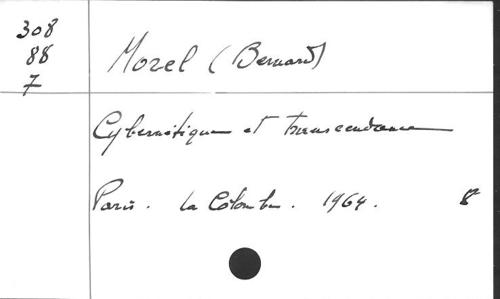 308
88
7
Morel (Bernard)
Cybernétique et transcendance
Paris. La Colombe. 1964. 8°